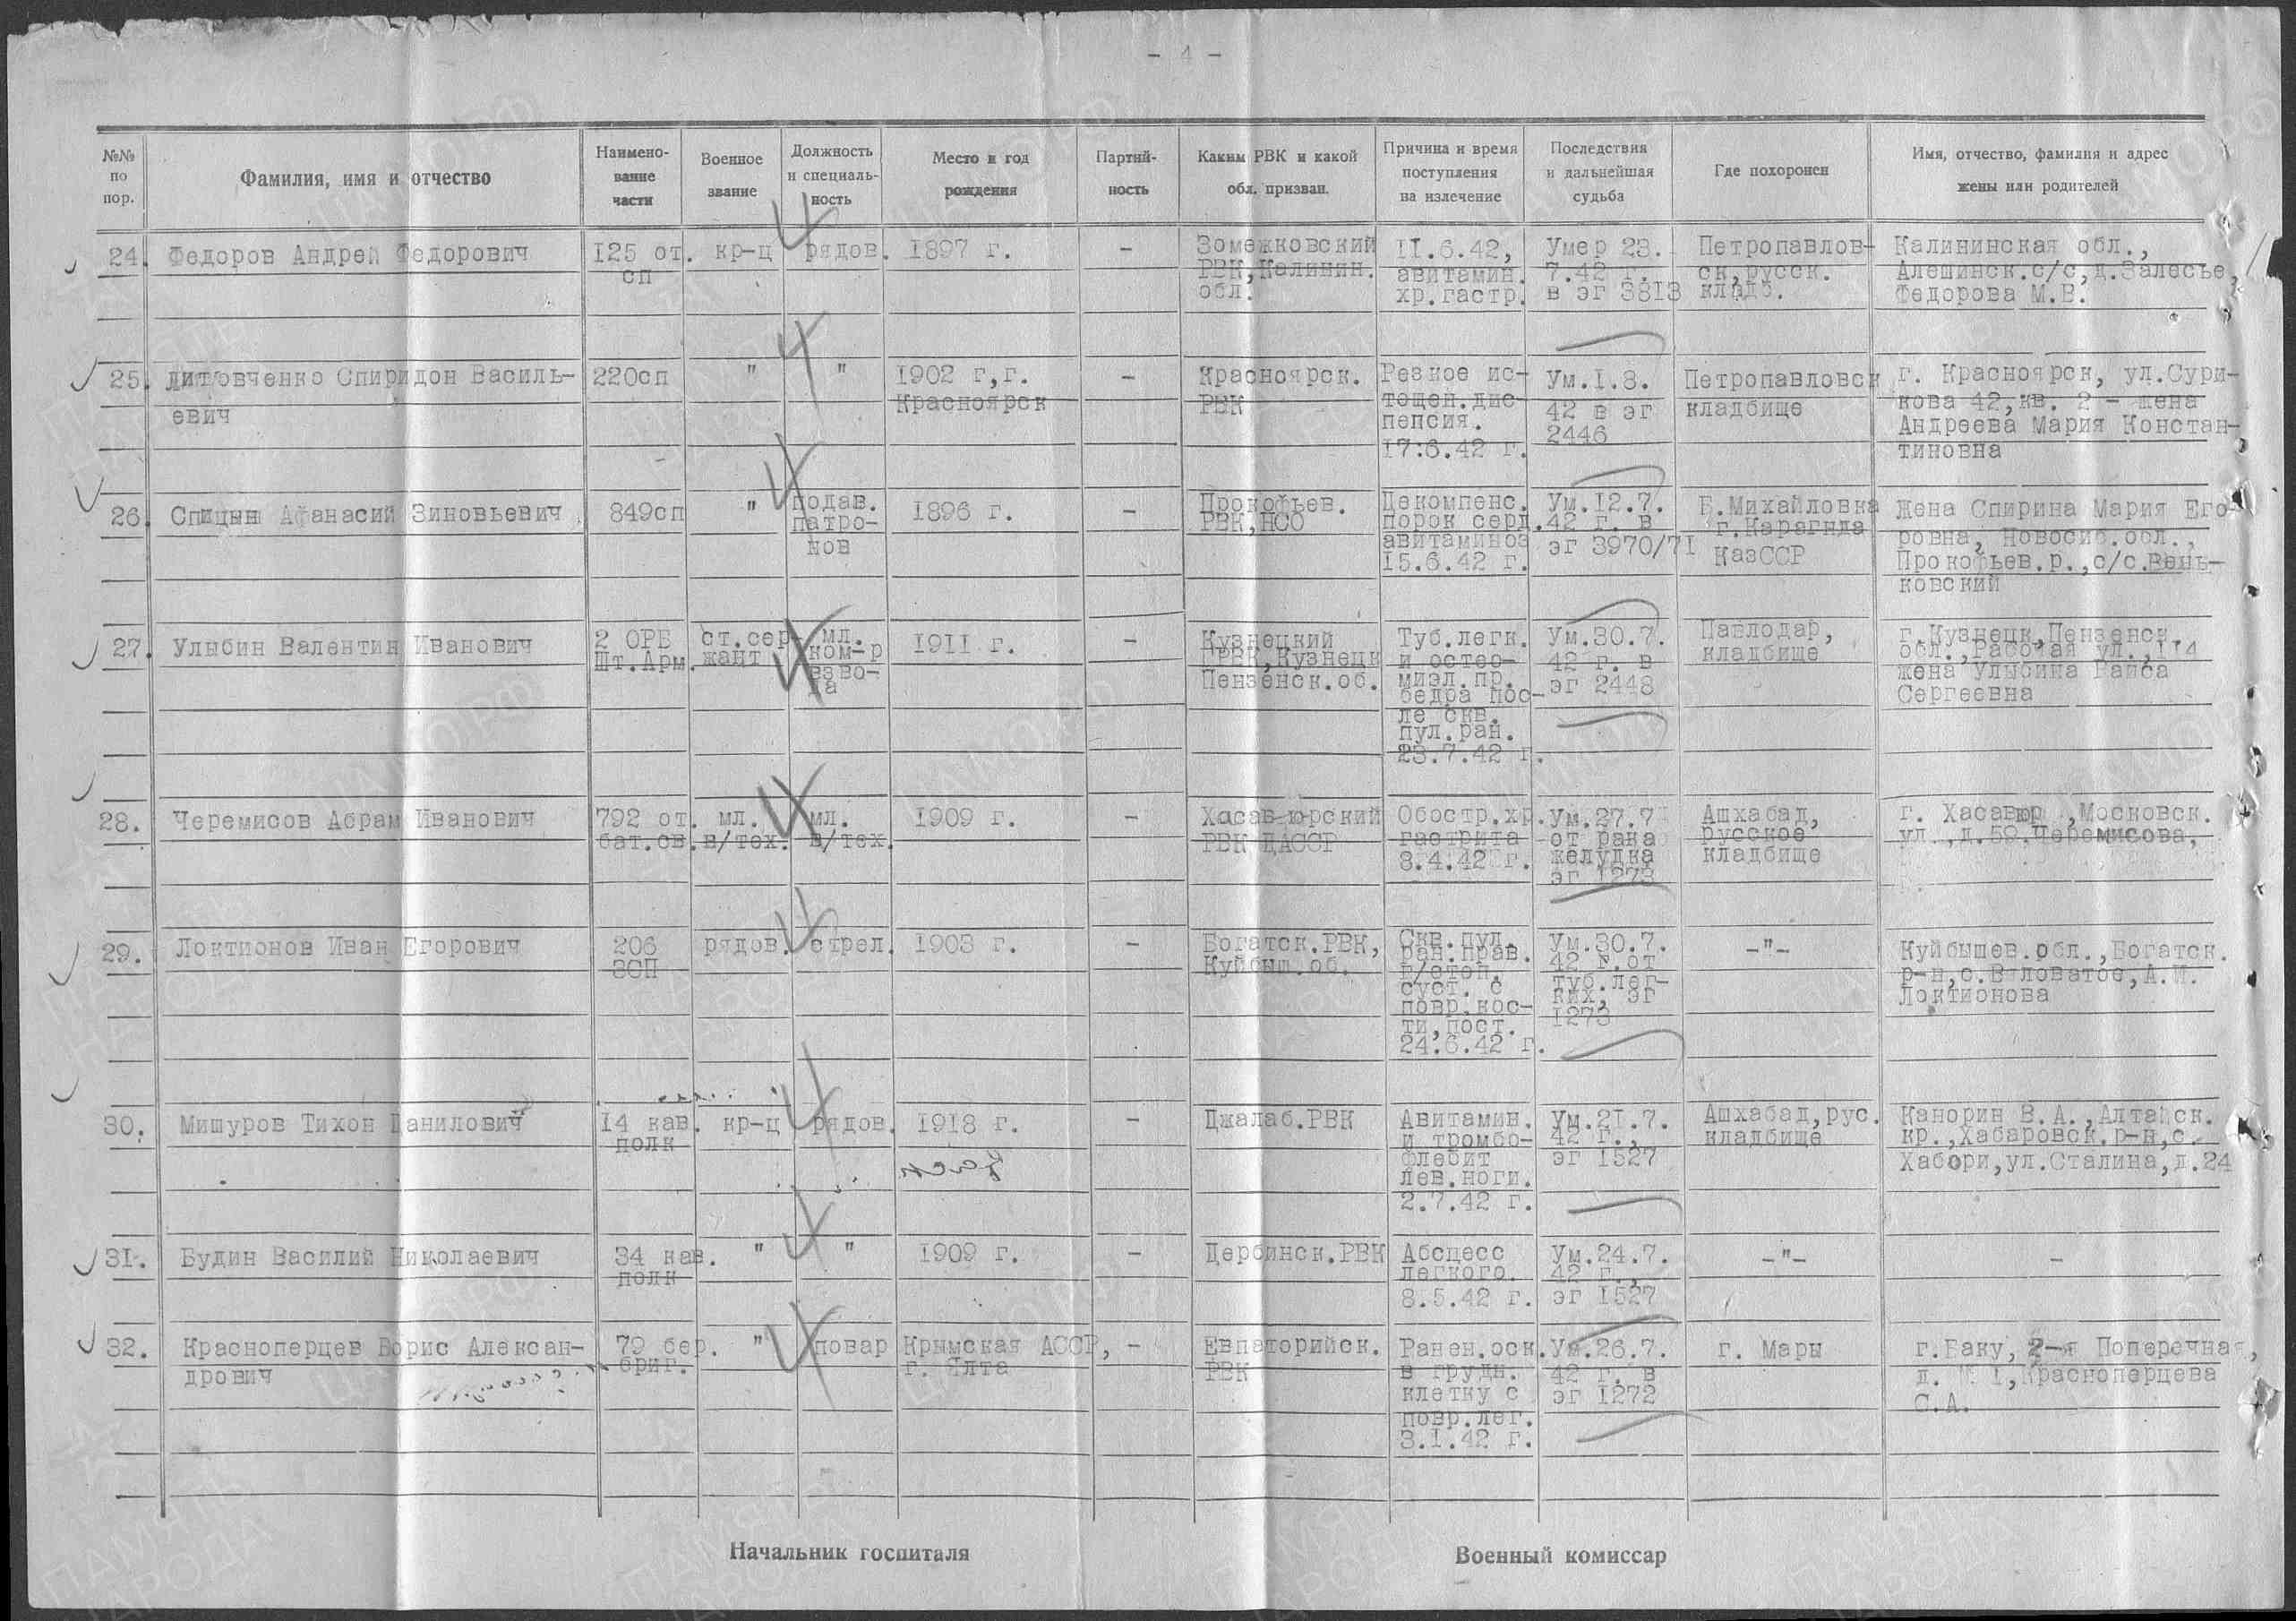 - 4 -
№№ по пор.
Фамилия, имя и отчество
Наимено-
вание
части
Военное
звание
Должность
и специаль-
ность
Место и год
рождения
Партий-
ность
Каким РВК и какой
обл. призван.
Причина и время
поступления
на излечение
Последствия
и дальнейшая
судьба
Где похоронен
Имя, отчество, фамилия и адрес
жены или родителей
24.
Федоров Андрей Федорович
125 от.
сп
кр-ц
рядов.
1897 г.
-
Зомежковский
РВК, Калинин.
обл.
11.6.42,
авитамин.
хр.гастр.
Умер 23.
7.42 г.
в эг 3813
Петропавлов-
ск, русск.
кладб.
Калининская обл.,
Алешинск.с/с,д.Залесье,
Федорова М.В.
25.
Литовченко Спиридон Василь-
евич
220сп
"
"
1902 г,г.
Красноярск
-
Красноярск.
РВК
Резкое ис-
тощен.дис-
пепсия.
17.6.42 г.
Ум.1.8.
42 в эг
2446
Петропавловск
кладбище
г. Красноярск, ул.Сури-
кова 42,кв. 2 - жена
Андреева Мария Констан-
тиновна
26.
Спицын Афанасий Зиновьевич
849сп
"
подав.
патро-
нов
1896 г.
-
Прокофьев.
РВК,НСО
Декомпенс.
порок серд.
авитаминоз
15.6.42 г.
Ум.12.7.
42 г. в
эг 3970/71
Б.Михайловка
г.Карагнда
КазССР
Жена Спирина Мария Его-
ровна, Новосиб.обл.,
Прокофьев.р.,с/с.Вень-
ковский
27.
Улыбин Валентин Иванович
2 ОРБ
Шт.Арм.
ст.сер-
жант
мл.
ком-р
взво-
да
1911 г.
-
Кузнецкий
РВК,Кузнецк
Пензенск.об.
Туб.легк.
и остео-
миэл.пр.
бедра пос-
ле скв.
пул.ран.
23.7.42 г.
Ум.30.7.
42 г. в
эг 2448
Павлодар,
кладбище
г.Кузнецк,Пензенск.
обл.,Рабочая ул.,114
жена Улыбина Раиса
Сергеевна
28.
Черемисов Абрам Иванович
792 от.
бат.св.
мл.
в/тех.
мл.
в/тех.
1909 г.
-
Хасав-юрский
РВК ДАССР
Обостр.хр.
гастрита
8.4.42 г.
Ум.27.7
от рака
желудка
эг 1273
Ашхабад,
русское
кладбище
г. Хасавюр ,Московск.
ул.,д.59.Черемисова,
29.
Локтионов Иван Егорович
206
ЗСП
рядов.
стрел.
1903 г.
-
Богатск.РВК,
Куйбыш.об.
Скв.пул.
ран.прав.
г/стоп.
суст. с
повр.кос-
ти,пост.
24.6.42 г.
Ум.30.7.
42 г.от
туб.лег-
ких, эг
1273
-"-
Куйбышев.обл.,Богатск.
р-н,с.Виловатое,А.И.
Локтионова
30.
Мишуров Тихон Данилович
14 кав.
полк
кр-ц
рядов.
1918 г.
-
Джалаб.РВК
Авитамин.
и тромбо-
флебит
лев.ноги.
2.7.42 г.
Ум.21.7.
42 г.,
эг 1527
Ашхабад,рус.
кладбище
Канорин В.А.,Алтайск.
кр.,Хабаровск.р-н,с.
Хабори,ул.Сталина,д.24
31.
Будин Василий Николаевич
34 кав.
полк
"
"
1909 г.
-
Дербинск.РВК
Абсцесс
легкого.
8.5.42 г.
Ум.24.7.
42 г.,
эг 1527
-"-
-
32.
Красноперцев Борис Алексан-
дрович
79 бер.
бриг.
"
повар
Крымская АССР,
г. Ялта
-
Евпаторийск.
РВК
Ранен.оск.
в грудн.
клетку с
повр.лег.
3.1.42 г.
Ум.26.7.
42 г. в
эг 1272
г. Мары
г.Баку, 2-я Поперечная,
д. № 1,Красноперцева
С.А.
Начальник госпиталя
Военный комиссар